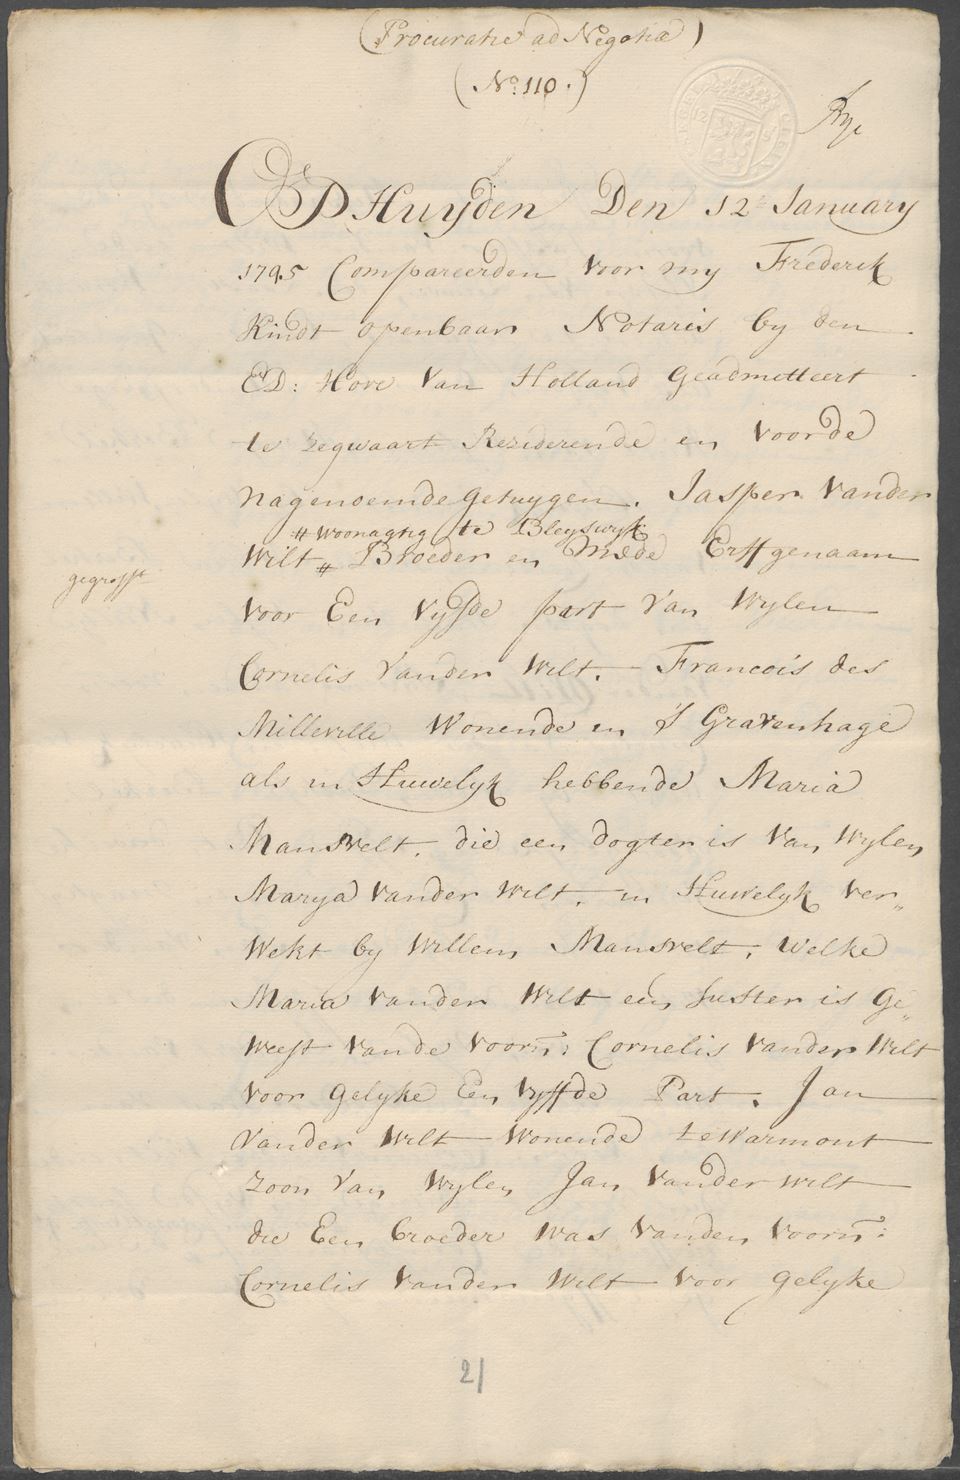 (Procuratie ad Negotia)
(N:o 110.)
OP Huyden Den 12e January
1795 Compareerden voor my Frederik
Kindt openbaar Notaris by den
ED: Hove Van Holland Geadmitteert
te Zegwaart Reziderende en voorde
nagenoemde getuygen. Jasper vander
# woonagtig te Bleyswyk
Wilt # Broeder en Mede Erffgenaam
gegrosst
voor Een vyfde part Van Wylen
Cornelis Vander Wilt. Francois des
Milleville Wonende in 's Gravenhage
als in Huwelyk hebbende Maria
Mansvelt, die een dogter is Van Wylen
Marya vander Wilt, in Huwelyk ver„
wekt by Willem Mansvelt, welke
Maria vander Wilt een suster is Ge„
weest vande voorn: Cornelis vander Wilt
voor gelyke Een vyffde Part. Jan
Vander Wilt Wonende te Warmont
zoon Van Wylen Jan vander Wilt
die Een broeder was vanden voorn:
Cornelis vander Wilt voor gelyke
21